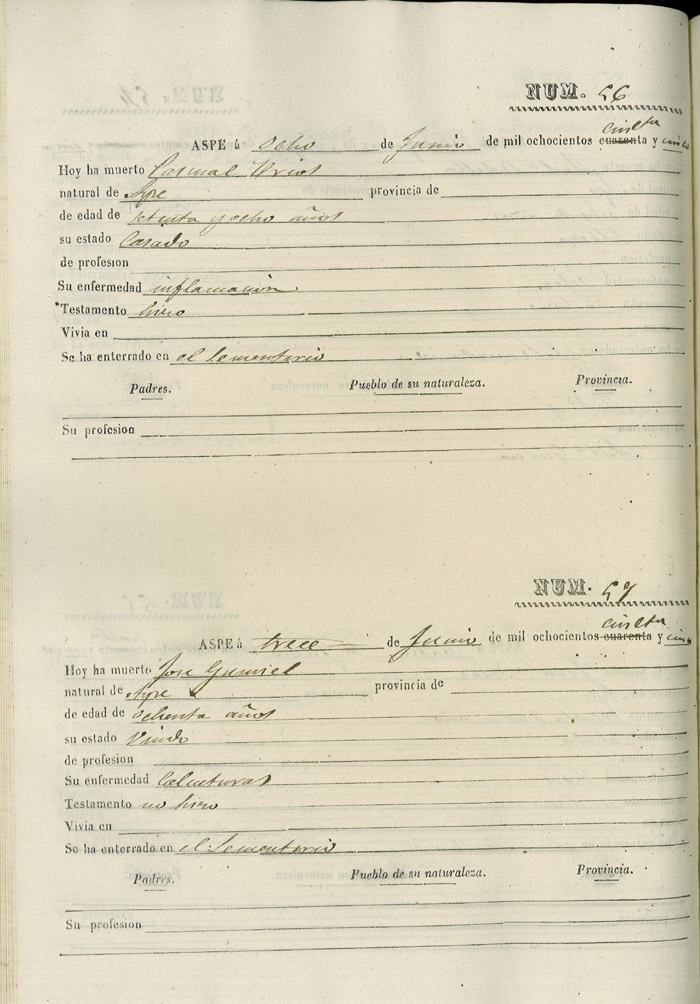 NUM. 56
ASPE á ocho de Junio de mil ochocientos cuarenta cincta y cinco
Hoy ha muerto Pascual Urios
natural de Aspe provincia de
de edad de setenta y ocho años
su estado Casado
de profesion
Su enfermedad inflamacion.
Testamento hizo
Vivia en
Se ha enterrado en el Sementerio
Padres. Pueblo de su naturaleza. Provincia.
Su profesion
NUM. 57
ASPE á trece de Junio de mil ochocientos cuarenta cincta y cinco
Hoy ha muerto Jose Gumiel
natural de Aspe provincia de
de edad de ochenta años
su estado Viudo
de profesion
Su enfermedad Calenturas
Testamento no hizo
Vivia en
Se ha enterrado en el Sementerio
Padres. Pueblo de su naturaleza. Provincia.
Su profesion